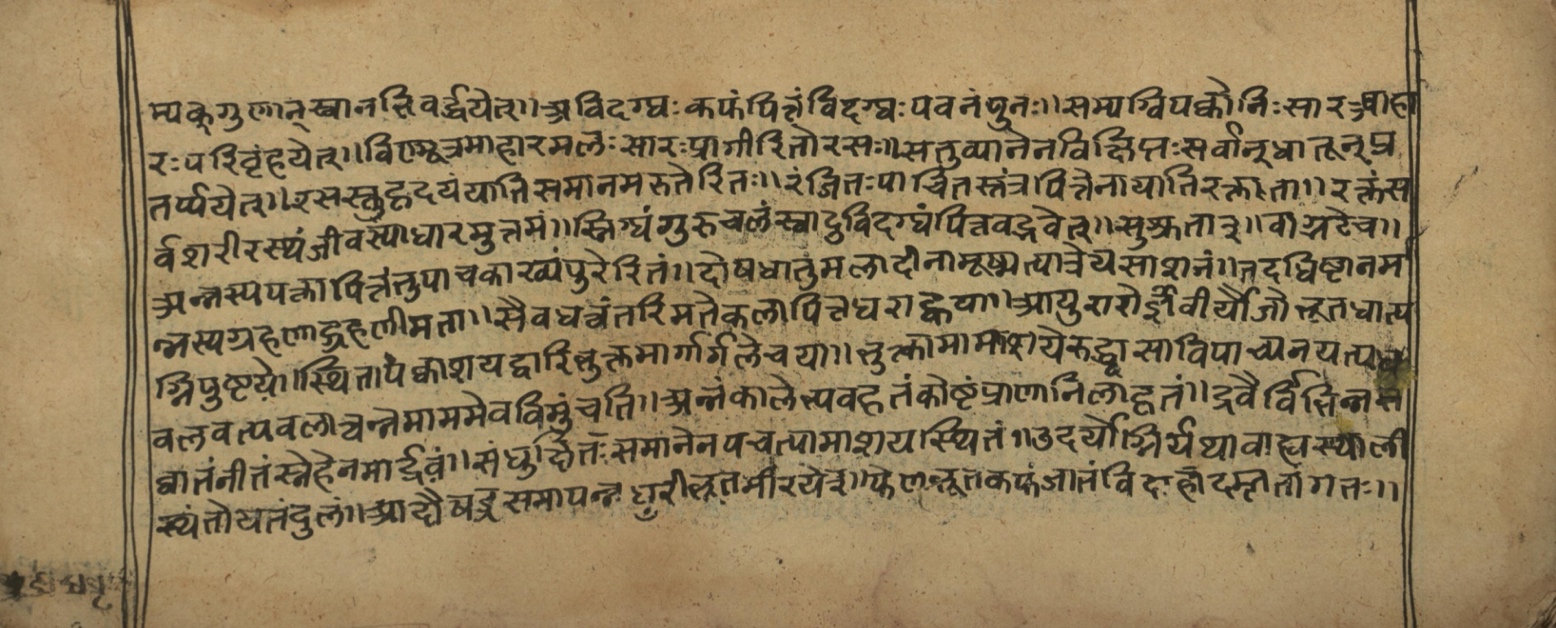 म्यक्गुणान्स्वानभिवर्द्धयेत्॥अविदग्धःकफंपित्तंविदग्धःपवनंपुनः॥सम्यग्विपक्कोनिःसारआहा
रःपरिवृंहयेत्॥विण्मूत्रमाहारमलःसारःप्रागीरितोरसः॥सतुव्यानेनविक्षिप्तःसर्वान्धातून्प्र
तर्प्पयेत्॥रसस्तुहृदयंयातिसमानमरुतेरितः॥रंजितःपाचितस्तंत्रपित्तेनायातिरक्तातां॥रक्तंस
र्वशरीरस्थंजीवस्याधारमुत्तमं॥स्निग्धंगुरुचलंस्वादुविदग्धंपित्तवद्भवेत्॥सुश्रुतात्॥वाग्भटेच॥
अन्नस्यपक्तापित्तंतुपाचकाख्यंपुरेरितं॥दोषधातुमलादीनामूष्मेत्यात्रेयसाशनं॥तदधिष्टानम
न्नस्यग्रहणाद्ग्रहणीमता॥सैवधन्वंतरिमतेकलापित्तधराह्वया॥आयुरारोर्ज्ञवीर्यौजोभूतधात्व
ग्निपुष्टये॥स्थितापंक्काशयद्वारिभुक्तमार्गार्गलेवया॥भुक्तामामाशयेरुद्ध्वासाविपाच्यनयत्यध
वलवत्यवलात्वन्नमाममेवविमुंचति॥अन्नंकालेभ्यवहृतंकोष्टंप्राणानिलाहृतं॥द्रवैर्विभिन्नसं
घातंनीतंस्नेहेनमार्द्दवं॥संधुक्षितःसमानेनपचत्यामाशयस्थितं॥उदर्योग्निर्यथावाह्यस्थाली
स्थंतोयतंदुलं॥आदौषड्रसमापन्नं